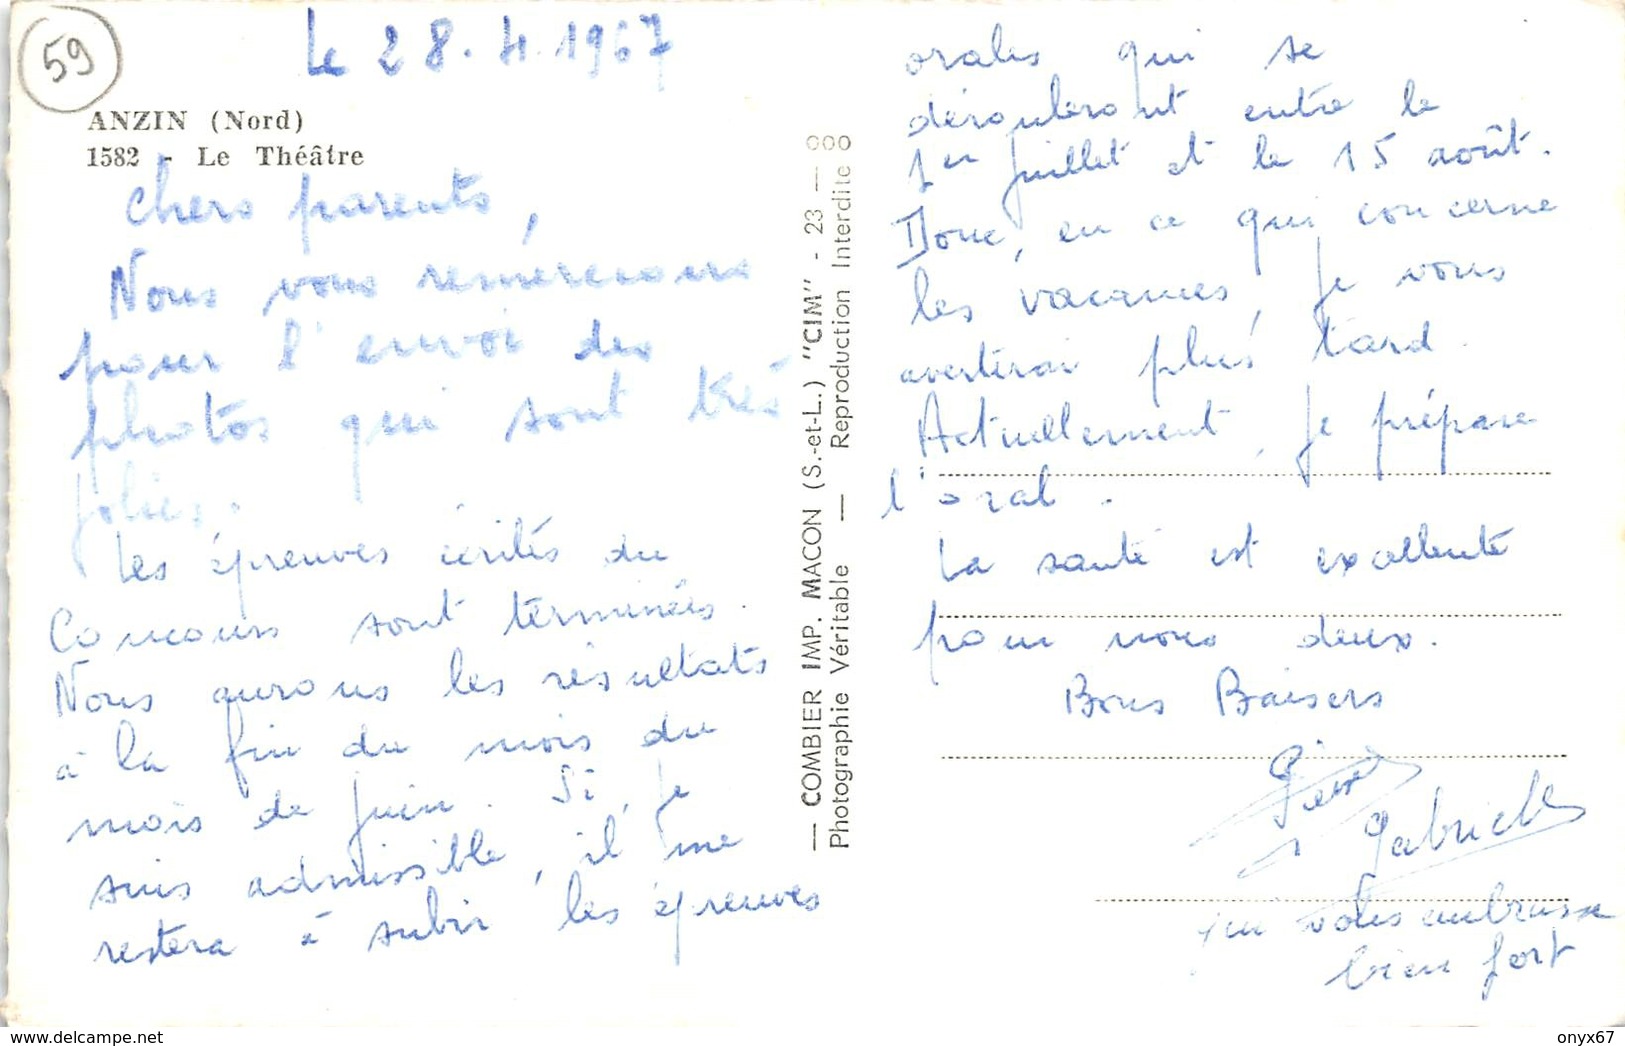 59
le 28.4.1967
ANZIN (Nord)
1582 - Le Théâtre
Chers parents,
Nous vous remercions
pour l'envoi des
photos qui sont très
jolies.
Les épreuves écrites du
Concours sont terminées.
Nous aurons les résultats
à la fin du mois du
mois de juin. Si, je
suis admissible, il me
restera à subir les épreuves
— COMBIER IMP. MACON (S.-et-L.) "CIM" - 23 — 000
Photographie Véritable — Reproduction Interdite
orales qui se
dérouleront entre le
1er juillet et le 15 août.
Donc, en ce qui concerne
les vacances, je vous
avertirai plus tard.
Actuellement, je prépare
l'oral.
La santé est excellente
pour nous deux.
Bons Baisers
Gabrielle
qui vous embrasse
bien fort
delcampe.net
onyx67